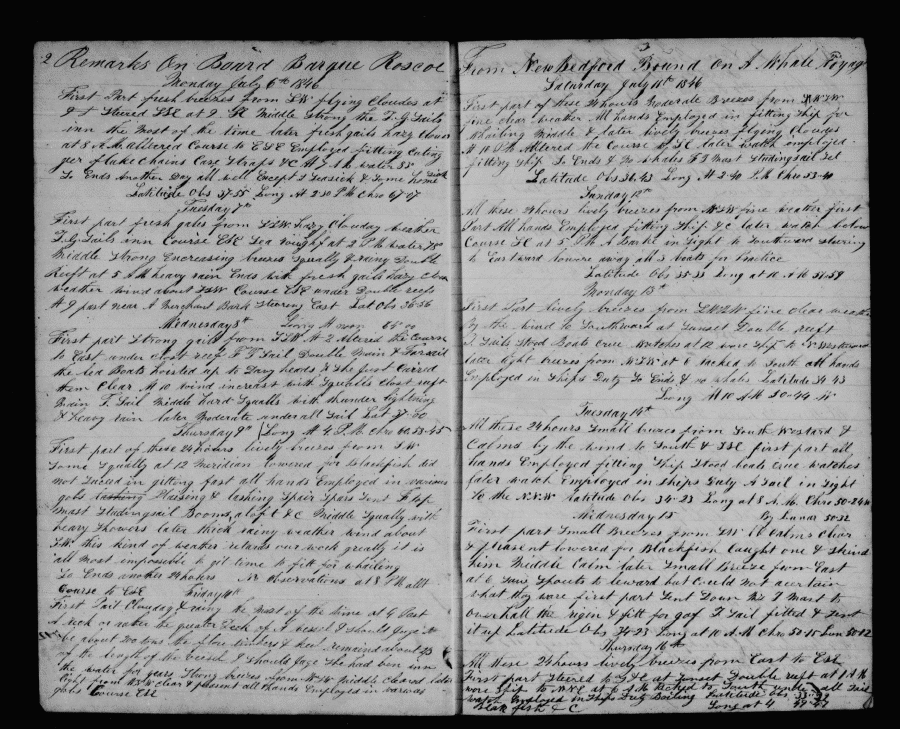 2 Remarks On Board Barque Roscoe
Monday July 6th 1846
First Part fresh breezes from SW flying Cloudes at
Steered ESE at 2 Middle strong the T.G. Sails
inn the most of the time later fresh gails hazy
at 5 A.M. altered Course to ESE Employed fitting
ger fluke Chains Case Straps &C M water 55
So Ends Another Day all well Except 2 Seasick & Some home Sick
Latitude Obs 37-55 Long At 2-30 P.M Chro 67-07
Tuesday 7th
First part fresh gales from SSW hazy Clouday weather
T.G. Sails inn Course ESE Sea rought at 2 P.M. water 78
Middle Strong Encreasing breezes Squally & rainy Double
Reeft at 5 A.M heavy rain Ends with fresh gails hazy
weather wind about SSW Course ESE under Double reefs
At 9 past near A Merchant Bark Stearing East Lat Obs 36-36
Wednesday 8th Long
First part Strong gails from SSW At 2 Altered the Course
to East under Close reef T Sail Double Main & Forsail
the Sea Boats hoisted up to Davy heads & the first Carried
them Clear At 10 wind increast with Squalls Close reeft
Main T. Sail Middle hard Squalls with thunder lightning
& heavy rain later Moderate under all Sail Lat 37-40
Thursday 9th Long At 4 P.M. Chro 60 53-45
First part of these 24 hours lively breezes from SW
Some Squally at 12 Meridian lowered for Blackfish did
not Suceed in gitting fast all hands Employed in various
gobs lashing Plaising & lashing Spair Spars Sent F top
mast Studingsail Booms, aloft &C Middle Squally with
heavy Showers later thick rainy weather wind about
SW this kind of weather retards our work greatly it is
all most impossible to git time to fitt for whaling
So Ends another 24 hours No Observations at 8 PM altd
Course to ESE Friday 10th
First Part Clouday & rainy the most of the time at 6 Past
A rich or rather the greater Peck of A vessel I should Juge to
be about 200 tons the floor timbers & keel remained about 45
of the length of the vessel I should Juge She had ben inn
the water for years Strong breezes from N W middle Cleared later
light from clear & plesent all hands Employed in various
gobs Course ESE
From New Bedford Bound On A Whale Voyag
Saturday July 11th 1846
First part of these 24 hours Moderate Breezes from
fine clear weather All hands Employed in fitting Ship for
Whaling Middle & later lively breezes flying Cloudes
At 10 P.M Altered the Course later watch employed
fitting Ship So Ends & no whales F T Mast Studingsail Set
Latitude Obs 36-43 Long At 2-40 P.M Chro 53-40
Sunday 12th
All these 24 hours lively breezes from fine weather first
Part All hands Employed fitting Ship &C later watch below
Course SE at 5 P.M A Barke in Sight to Southward Stearing
to Eastward lowere away all 3 boats for Practice
Latitude Obs 35-35 Long at 10 A.M 51-59
Monday 13th
First Part lively breezes from fine clear weather
by the wind to Southward at Sunset Double reeft
T. Sails Stood Boats Crue Watches at 12 wore Ship to Westward
later light breezes from at 6 tacked to South all hands
Employed in Ships Duty So Ends & no whales Latitude 34-43
Long At 10 A.M 50-44 W
Tuesday 14th
All these 24 hours Small breezes from South Westard &
Calms by the wind to South & SSE first part all
hands Employed fitting Ship Stood boats crue watches
later watch Employed in Ships Duty A Sail in Sight
to the N.N.W Latitude Obs 34-23 Long at 8 A.M. Chro 50-24 W
Wednesday 15 By Lunar 50-32
First part Small Breezes from to Calms Clear
& plesent lowered for Blackfish Caught one & Skind
him Middle Calm later Small Breeze from East
at 6 Saw Spouts to leward but Could not acertain
what they wore first part Sent Down T Mast to
Overhall the rigin & fitt for gaf T Sail fitted & Sent
it up Latitude Obs 34-23 Long at 10 A.M Chro 50-15 Lun 50-12
Thursday 16th
All these 24 hours lively breezes from East to ESE
First part Steered to SSE at Sunset Double reeft at 1 A.M
wore Ship to NNE at 6 A.M tacked to South under all Sail
watch Employed in Ships Duty Boiling Latitude Obs 33-29
Blak fish &C Long at 4 49-47